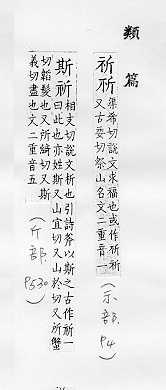 類篇
祈祈 渠希切說文求福也或作祈祈
又古委切祭山名文二重音一
(示部, P4)
斯祈 相支切說文析也引詩斧以斯之古作祈一
曰此也亦姓斯又山宜切又山於切又所蟹
切韜髮也又所綺切又斯
義切盡也文二重音五
(斤部, P530)